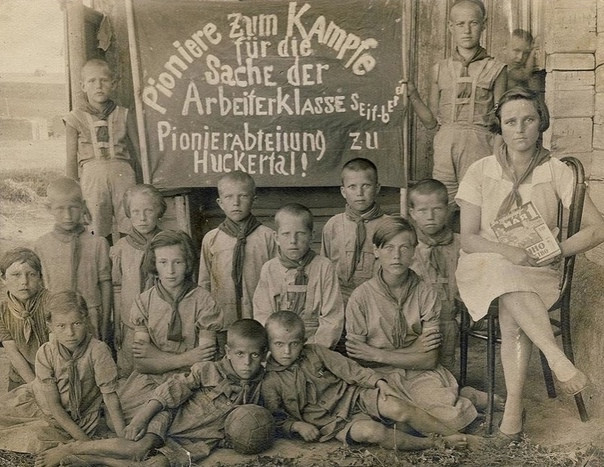 Pioniere zum Kampfe
für die
Sache der
Arbeiterklasse seit-berd
Pionierabteilung zu
Huckertal!